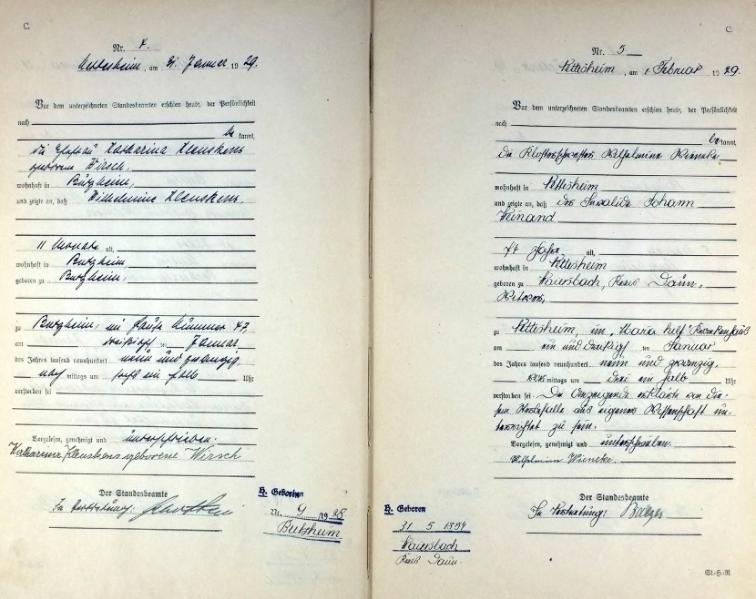 C
Nr. 4.
am 31. Januar 1929.
Vor dem unterzeichneten Standesbeamten erschien heute, der Persönlichkeit
nach
be kannt,
die Ehefrau Katharina Kleuskens
geborene Wirsch,
wohnhaft in Butzheim,
und zeigte an, daß Wilhelmine Kleuskens,
11 Monate alt,
wohnhaft in Butzheim,
geboren zu Butzheim,
zu Butzheim, im Hause Nummer 47,
am dreißigsten Januar
des Jahres tausend neunhundert neun und zwanzig,
nach mittags um fünf ein halb Uhr
verstorben sei
Vorgelesen, genehmigt und unterschrieben.
Katharina Kleuskens geborene Wirsch
Der Standesbeamte
In Vertretung:
H. Geboren
Nr. 9 1928
Butzheim
C
Nr. 5
Nettesheim, am 1. Februar 1929.
Vor dem unterzeichneten Standesbeamten erschien heute, der Persönlichkeit
nach
be kannt,
die Klosterschwester Wilhelmine Wieneke
wohnhaft in Nettesheim
und zeigte an, daß der Invalide Johann
Weinand
74 Jahre alt,
wohnhaft in Nettesheim
geboren zu Kreis Daun,
Witwer,
zu Nettesheim, im "Maria hilf" Krankenhaus
am ein und dreißigsten Januar
des Jahres tausend neunhundert neun und zwanzig,
vor mittags um drei ein halb Uhr
verstorben sei. Die Anzeigende erklärte von die-
sem Sterbefalle aus eigener Wissenschaft un-
terrichtet zu sein.
Vorgelesen, genehmigt und unterschrieben.
Wilhelmine Wieneke.
Der Standesbeamte
In Vertretung:
H. Geboren
31 5 1854
Kreis Daun.
St.-H.-R.